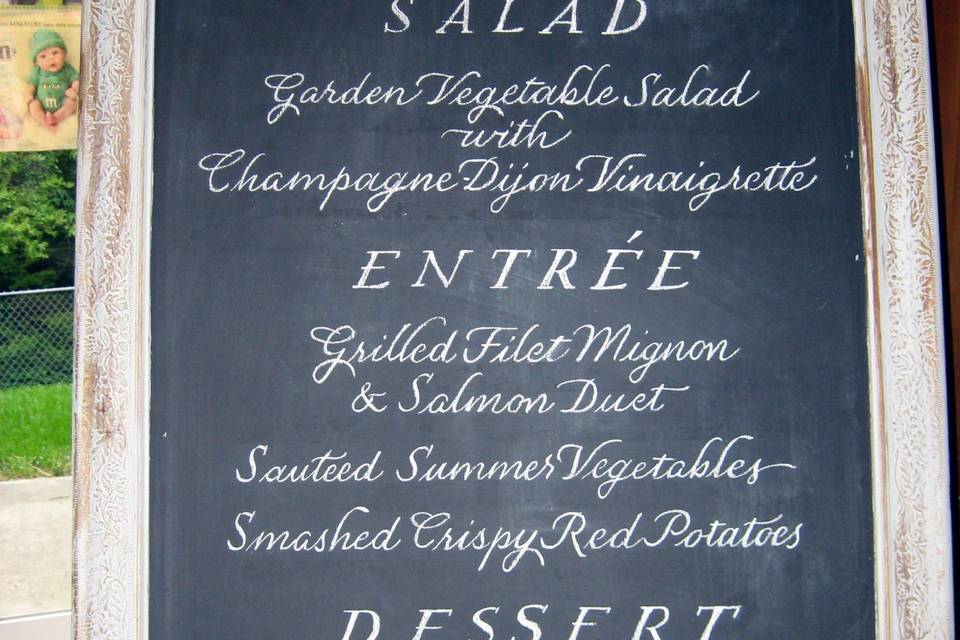 SALAD
Garden Vegetable Salad
with
Champagne-Dijon Vinaigrette
ENTRÉE
Grilled Filet Mignon
& Salmon Duet
Sauteed Summer Vegetables
Smashed Crispy Red Potatoes
DESSERT